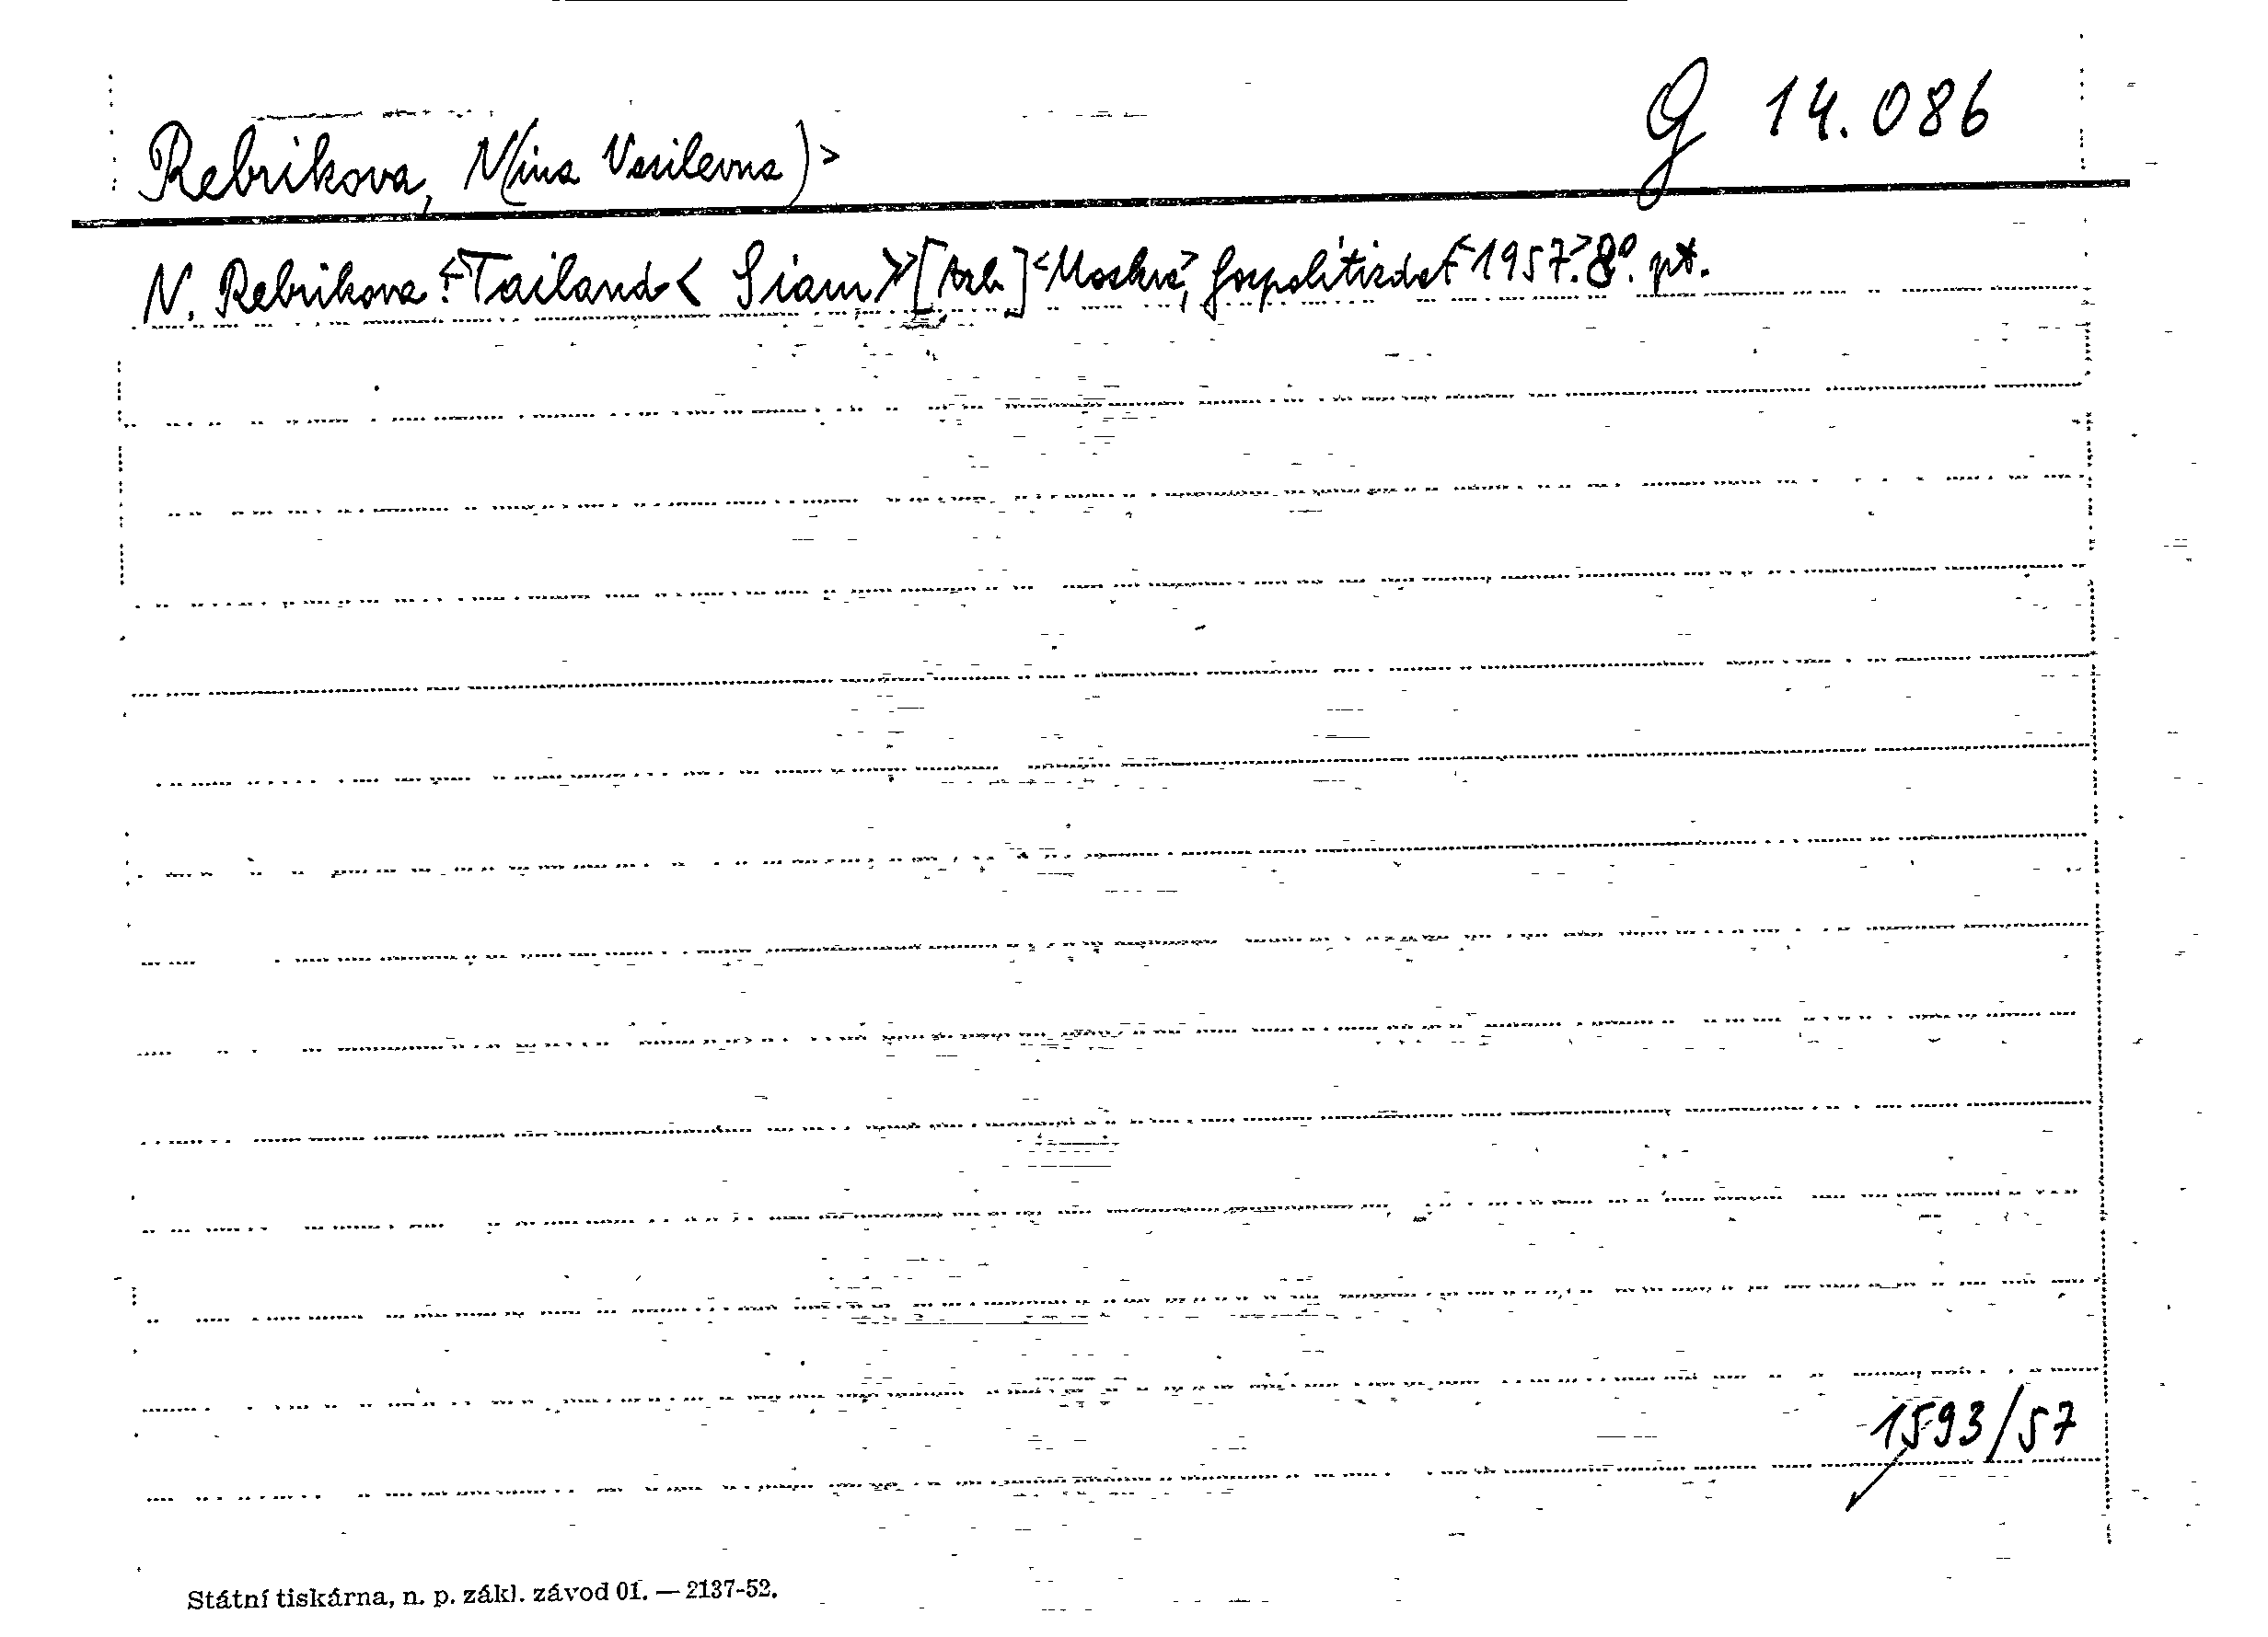 G 14.086
Rebrikova, N(ina Vasilevna)>
N. Rebrikova: <Tailand < Siam >> [Azb.] <Moskva>, Gospolitizdat <1957.> 8°. pt.
1593/57
Státní tiskárna, n. p. zákl. závod 01. — 2137-52.